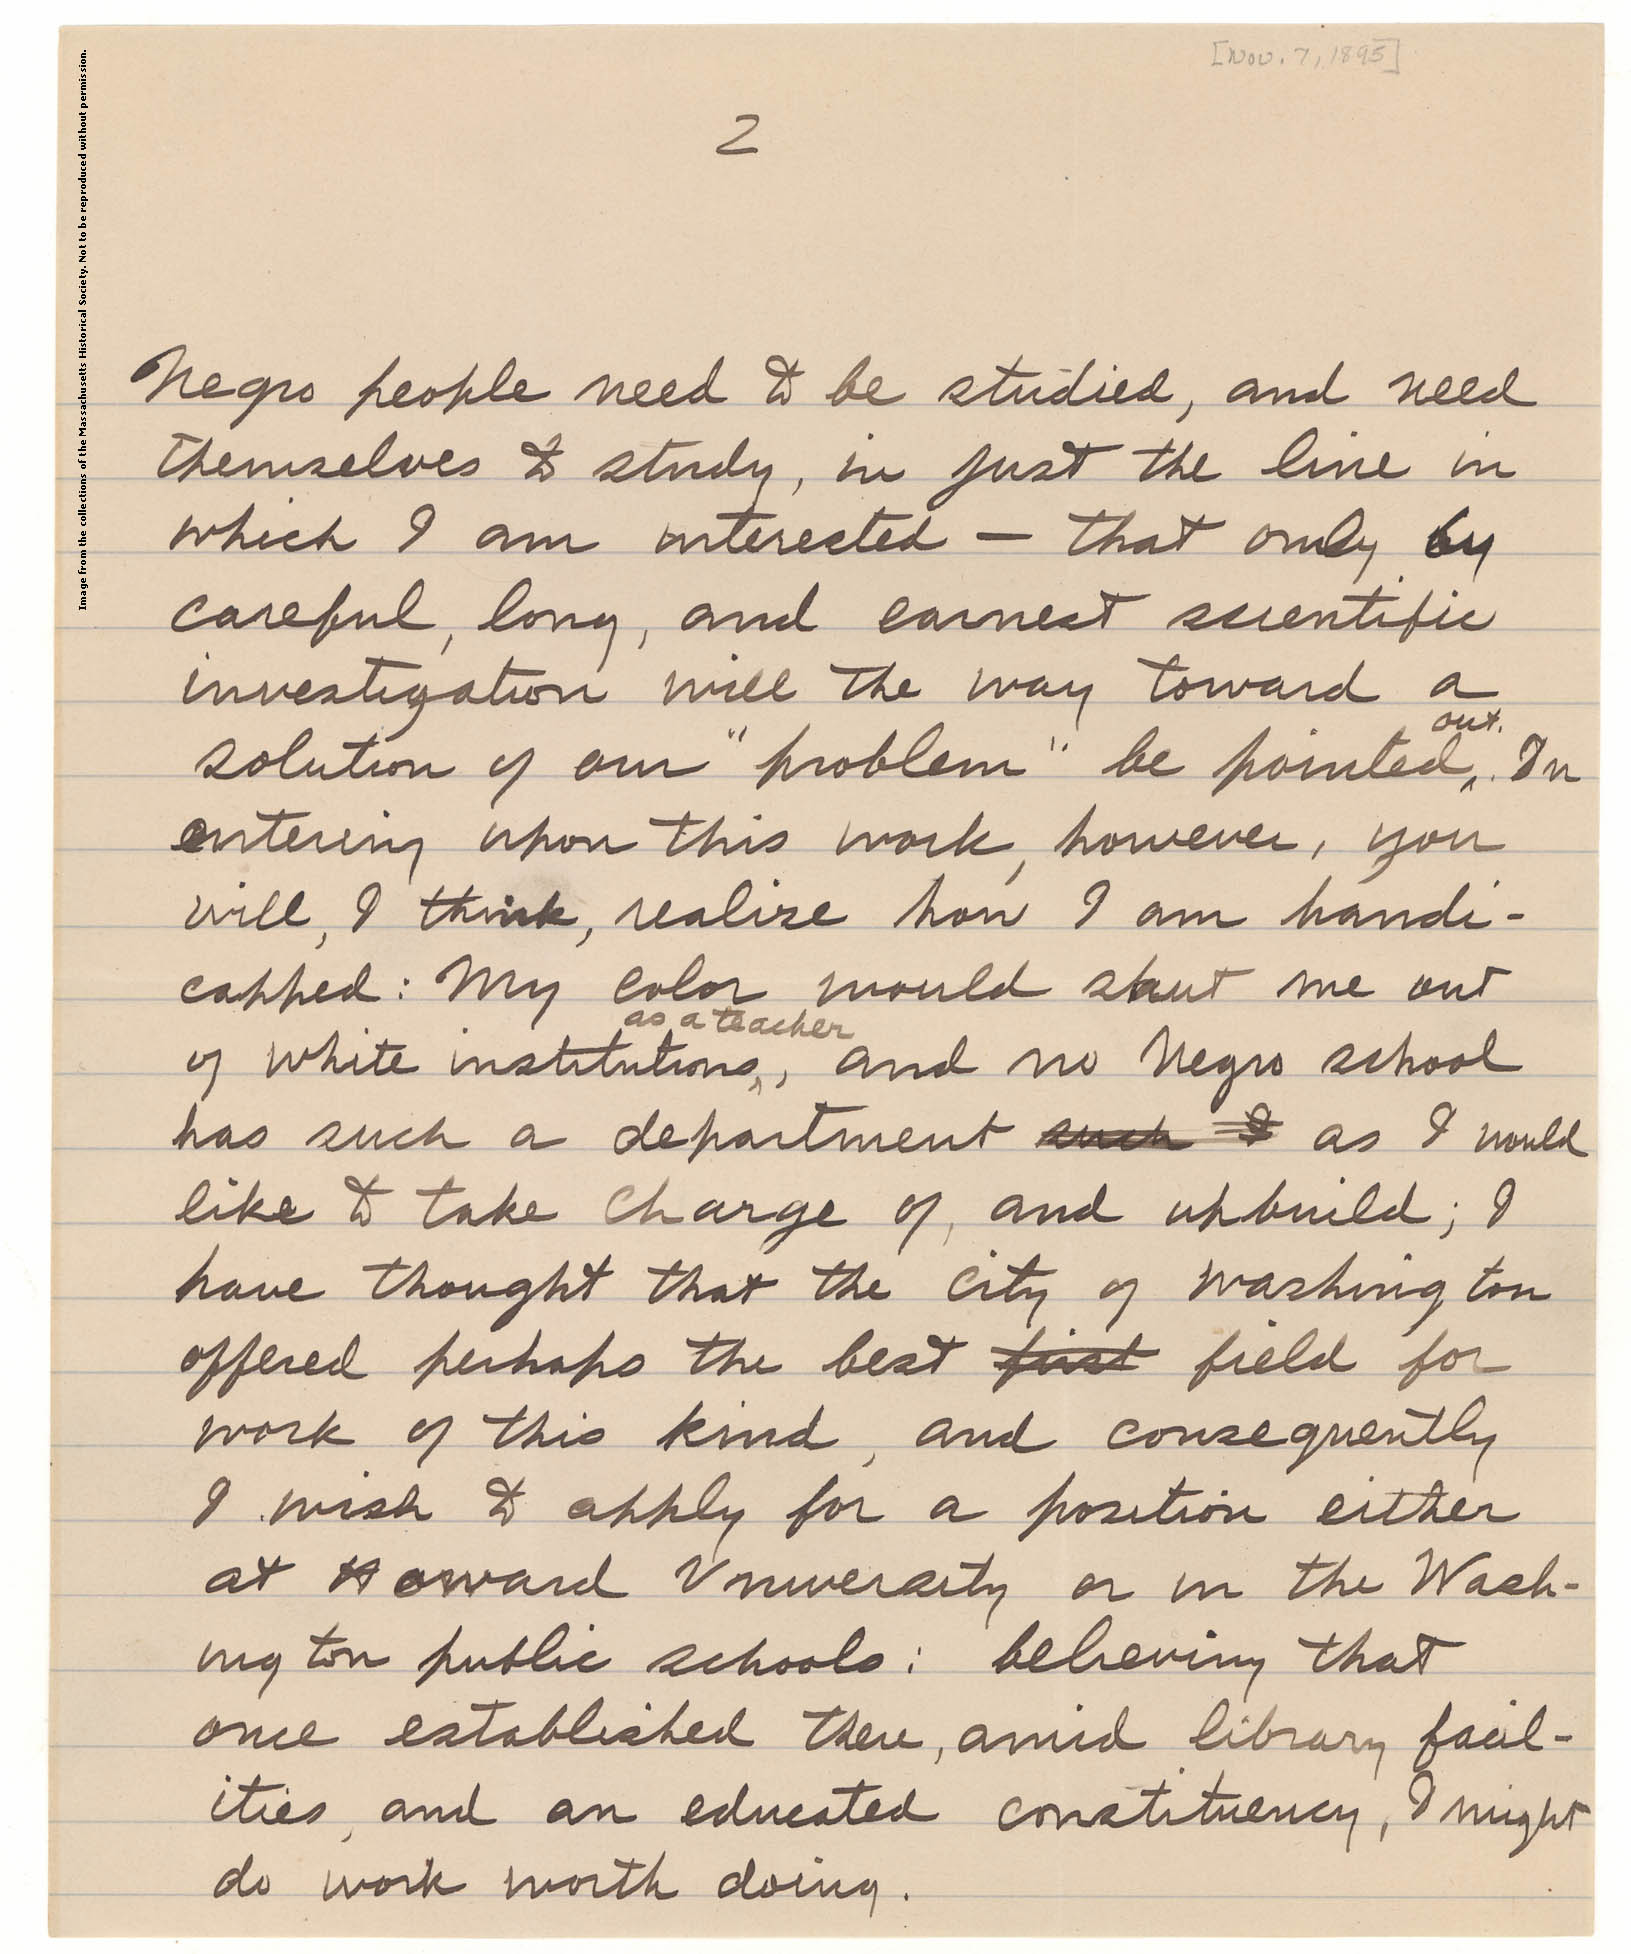 Image from the collections of the Massachusetts Historical Society. Not to be reproduced without permission.
[Nov. 7, 1895]
2
Negro people need to be studied, and need
themselves to study, in just the line in
which I am interested — that only by
careful, long, and earnest scientific
investigation will the way toward a
out.
solution of our "problem" be pointed‸. In
entering upon this work, however, you
will, I think, realize how I am handi-
capped: My color would shut me out
as a teacher
of white institutions‸, and no Negro school
has such a department such I as I would
like to take charge of, and upbuild; I
have thought that the city of Washington
offered perhaps the best first field for
work of this kind, and consequently
I wish to apply for a position either
at Howard University or in the Wash-
ington public schools: believing that
once established there, amid library facil-
ities, and an educated constituency, I might
do work worth doing.